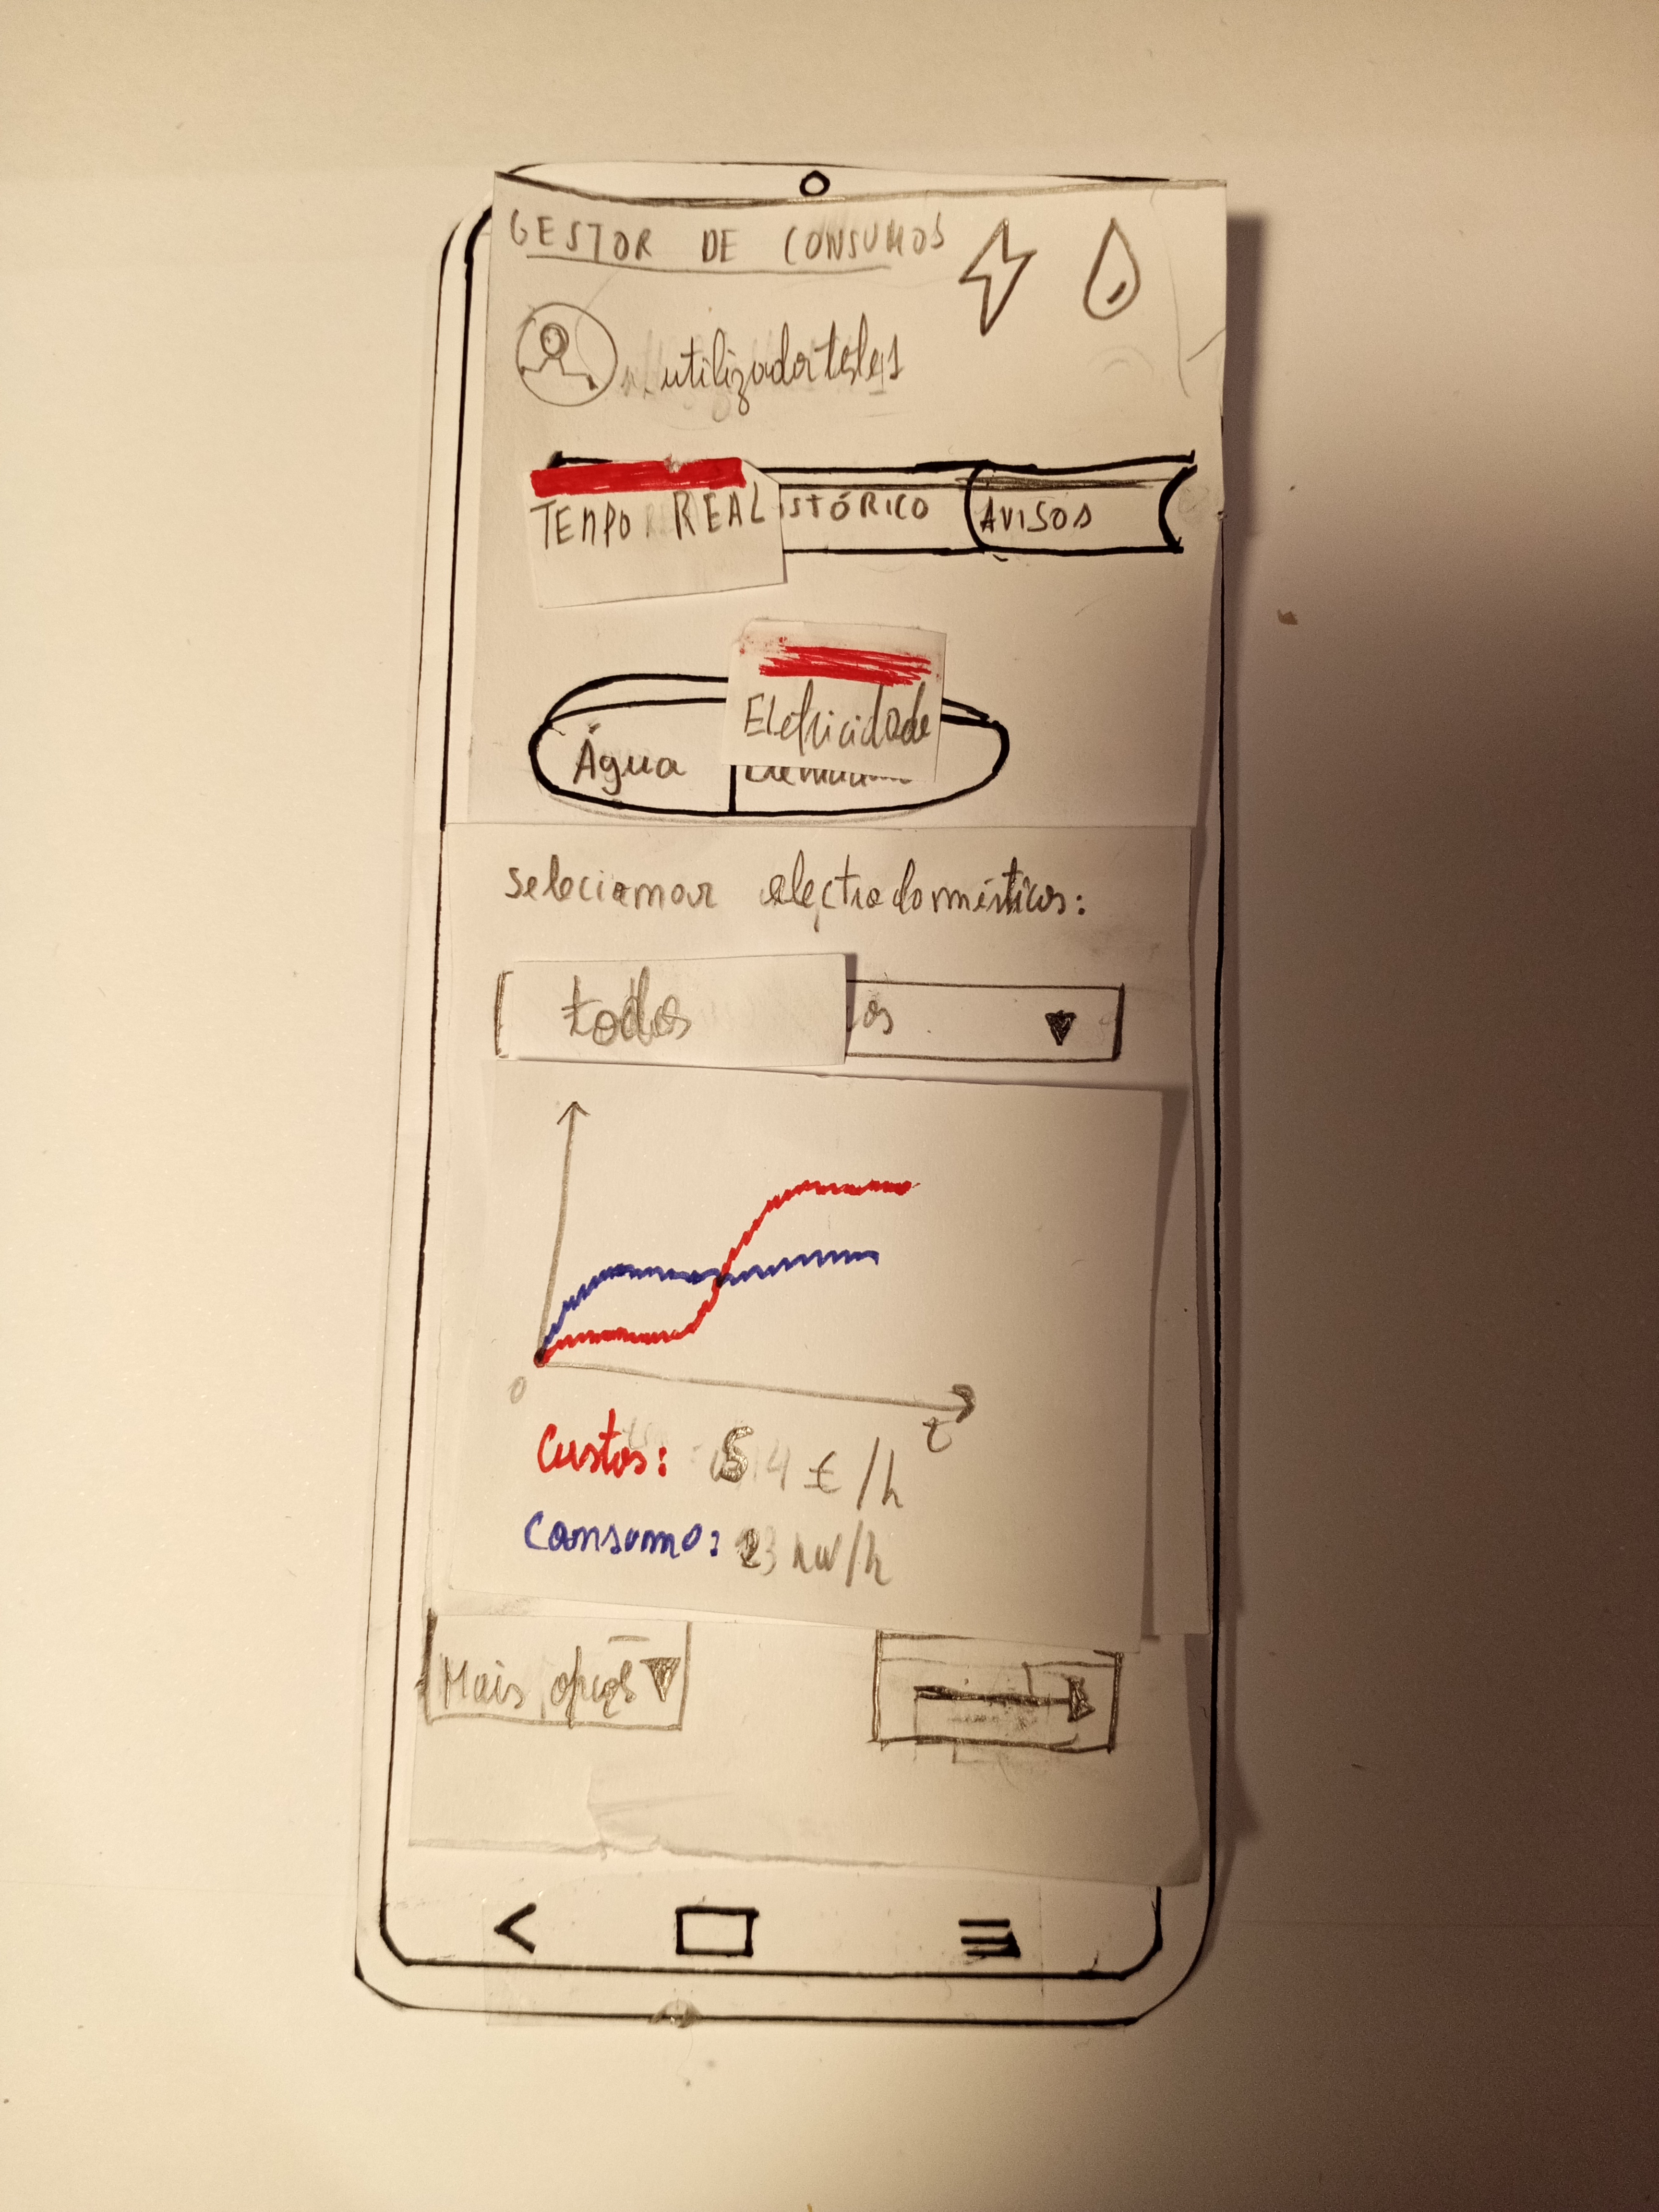 GESTOR DE CONSUMOS
utilizador teles1
TEMPO REAL STÓRICO AVISOS
Eletricidade
Água
Selecionar electrodomésticos:
todos os
0
t
Custos: 5 €/h
Consumo: 23 kW/h
Mais opções